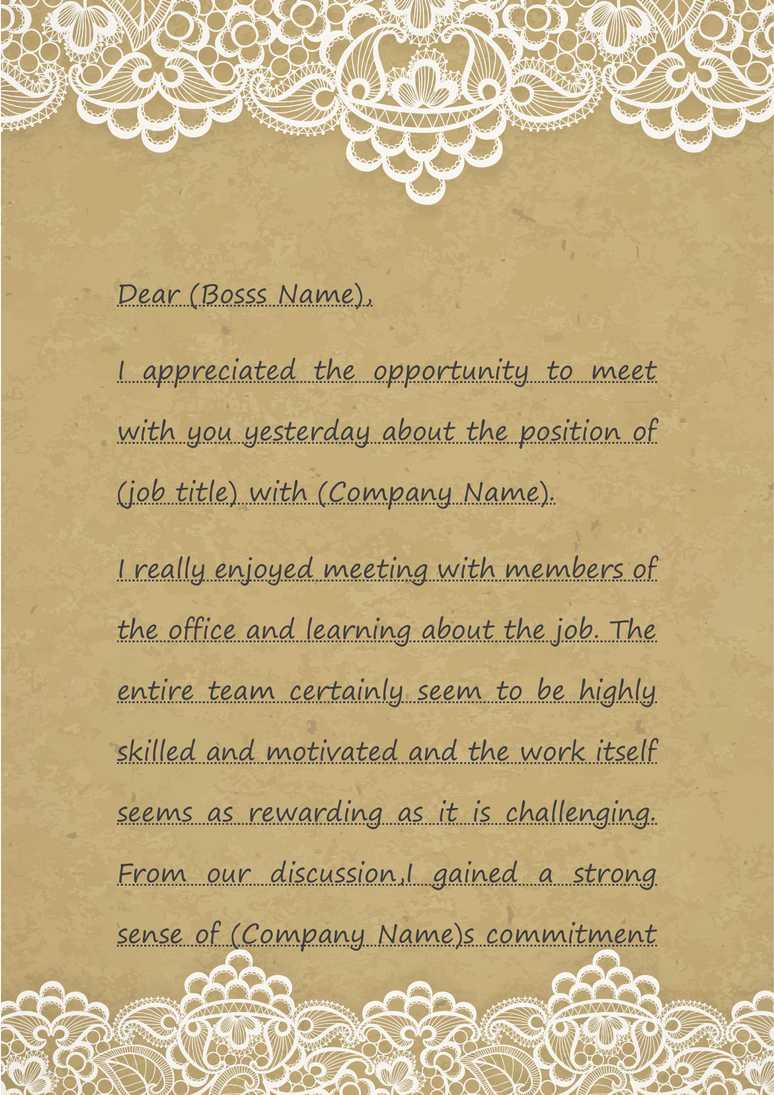 Dear (Bosss Name),
I appreciated the opportunity to meet
with you yesterday about the position of
(job title) with (Company Name).
I really enjoyed meeting with members of
the office and learning about the job. The
entire team certainly seem to be highly
skilled and motivated and the work itself
seems as rewarding as it is challenging.
From our discussion,I gained a strong
sense of (Company Name)s commitment